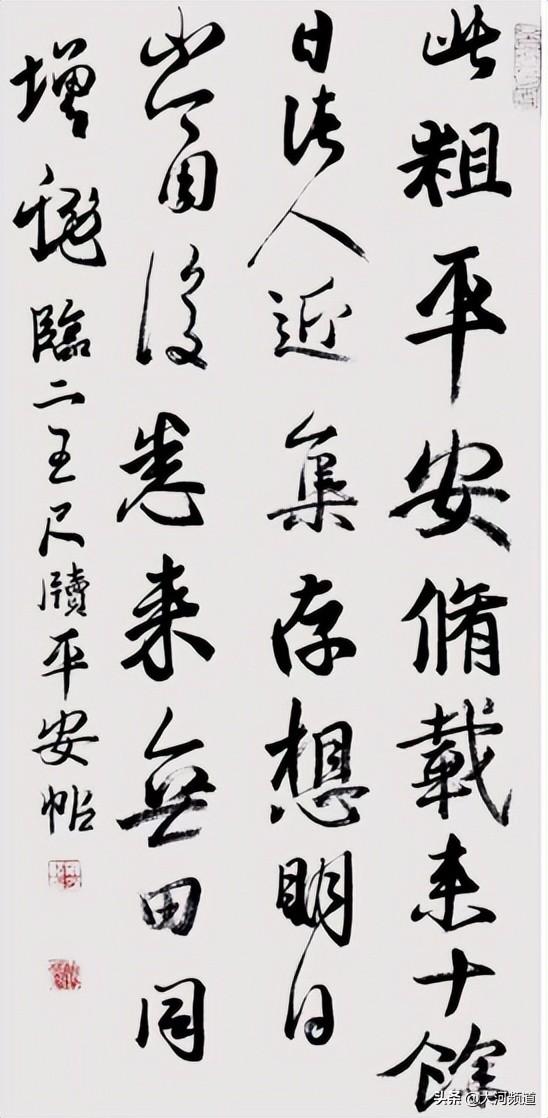 此粗平安脩載来十餘
日諸人近集存想明日
復悉来無由同
增慨臨二王尺牘平安帖
头条 @大河频道